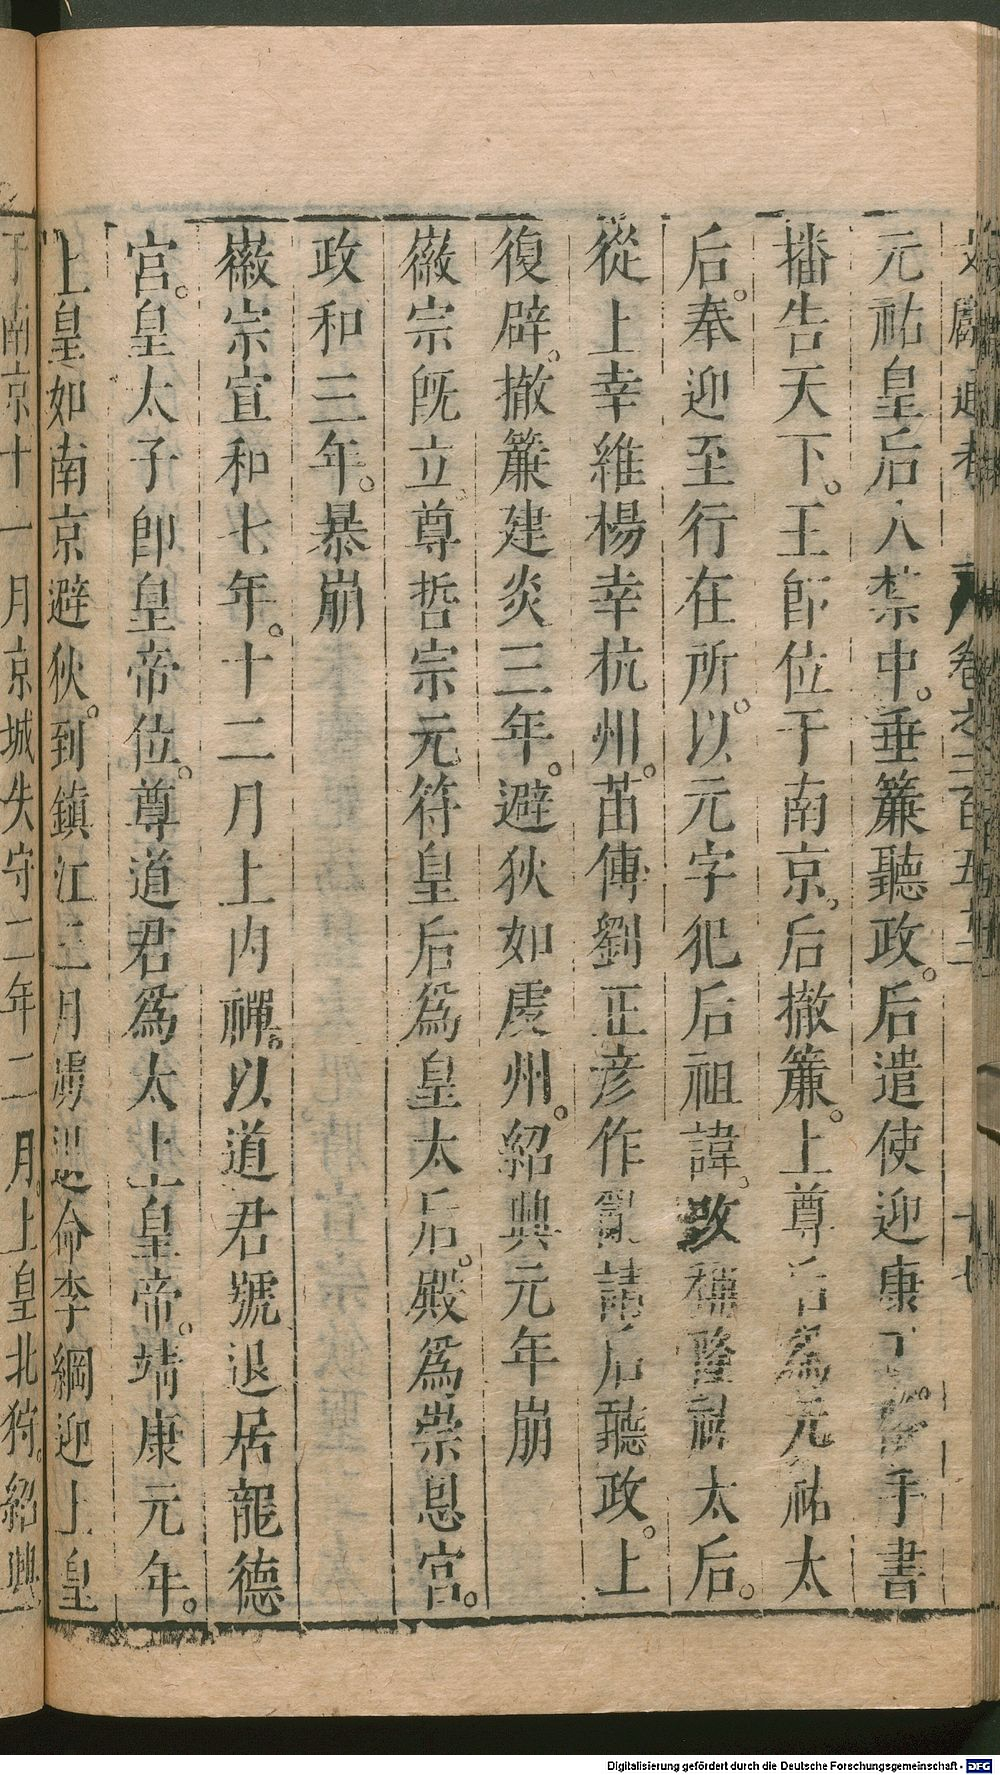 文獻通考 卷之二百五十二
元祐皇后入禁中。垂簾聽政。后遣使迎康 手書
播告天下。王卽位于南京。后撤簾。上尊后爲元祐太
后。奉迎至行在所。以元字犯后祖諱。改稱隆祐太后。
從上幸維楊幸杭州。苗傅劉正彥作亂請后聽政。上
復辟。撤簾建炎三年。避狄如虔州。紹興元年崩
徽宗旣立。尊哲宗元符皇后爲皇太后。殿爲崇恩宮。
政和三年。暴崩
徽宗宣和七年。十二月上內禪。以道君號退居龍德
宮。皇太子卽皇帝位。尊道君爲太上皇帝。靖康元年。
上皇如南京避狄。到鎮江三月虜退命李綱迎上皇
于南京十一月京城失守二年二月。上皇北狩。紹興
Digitalisierung gefördert durch die Deutsche Forschungsgemeinschaft - DFG